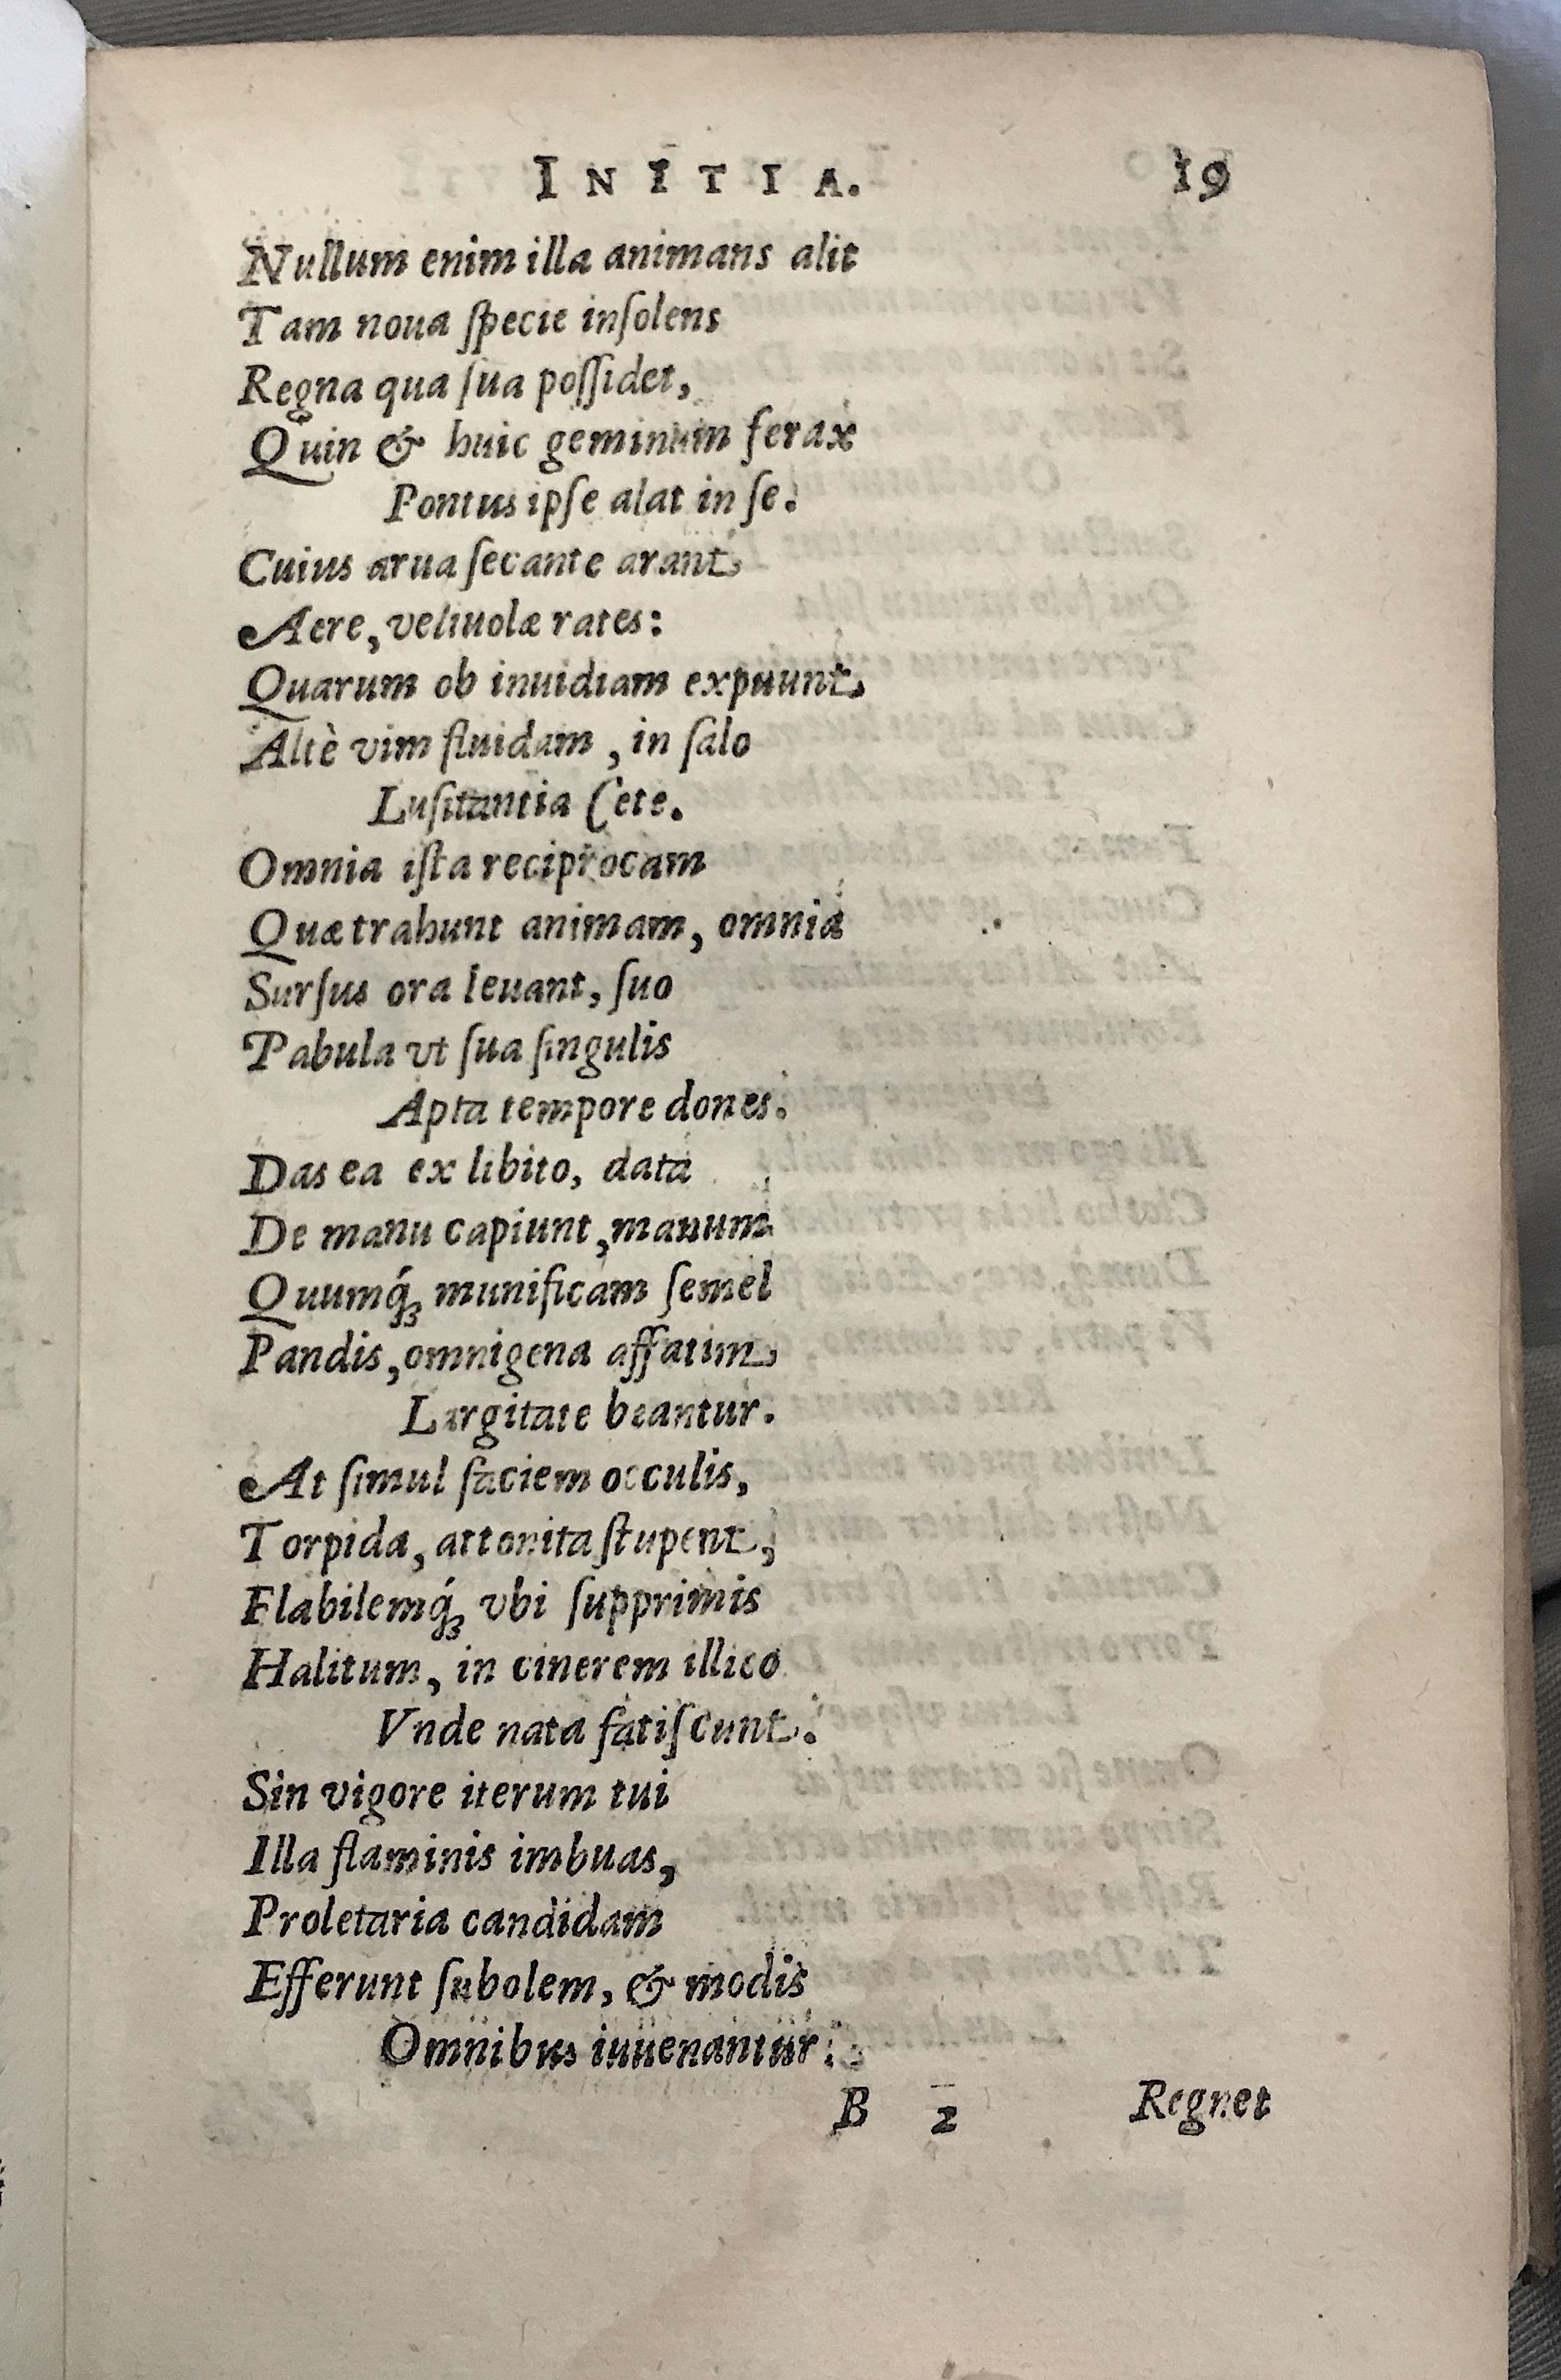 INITIA. 19
Nullum enim illa animans alit
Tam noua ſpecie inſolens
Regna qua ſua poſſidet,
Quin & huic geminum ferax
Pontus ipſe alat in ſe.
Cuius arua ſecante arant
Aere, veliuolæ rates:
Quarum ob inuidiam expuunt
Altè vim fluidam, in ſalo
Luſitantia Cete.
Omnia iſta reciprocam
Quæ trahunt animam, omnia
Surſus ora leuant, ſuo
Pabula vt ſua ſingulis
Apta tempore dones.
Das ea ex libito, data
De manu capiunt, manum
Quumq́ꝫ munificam ſemel
Pandis, omnigena affatim
Largitate beantur.
At ſimul faciem occulis,
Torpida, attonita ſtupent,
Flabilemq́ꝫ vbi ſupprimis
Halitum, in cinerem illico
Vnde nata fatiſcunt.
Sin vigore iterum tui
Illa flaminis imbuas,
Proletaria candidam
Efferunt ſubolem, & modis
Omnibus iuuenantur.
B 2 Regnet